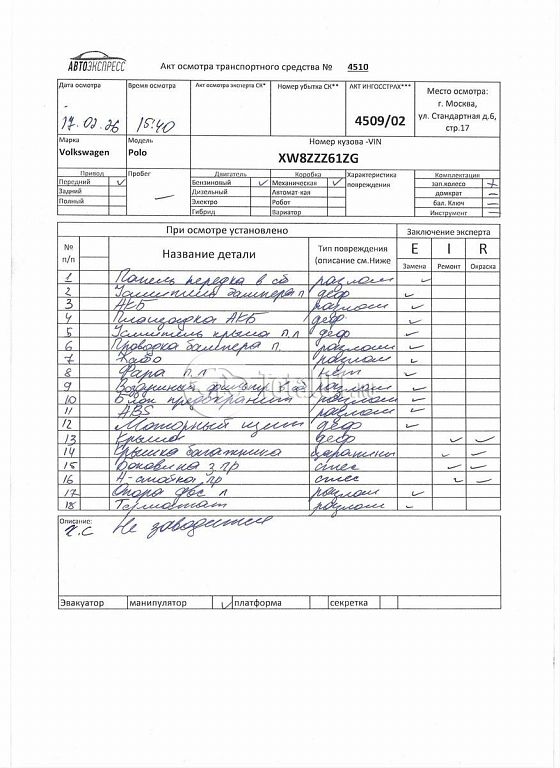 АВТОЭКСПРЕСС
Акт осмотра транспортного средства № 4510
Дата осмотра Время осмотра Акт осмотра эксперта СК* Номер убытка СК** АКТ ИНГОССТРАХ*** Место осмотра:
г. Москва,
ул. Стандартная д.6,
стр.17
17.02.26 15:40 4509/02
Марка Модель Номер кузова -VIN
Volkswagen Polo XW8ZZZ61ZG
Привод Пробег Двигатель Коробка Характеристика повреждения Комплектация
Передний Бензиновый Механическая зап.колесо +
Задний — Дизельный Автомат-кая домкрат —
Полный Электро Робот бал. Ключ —
Гибрид Вариатор Инструмент —
При осмотре установлено Заключение эксперта
№ п/п Название детали Тип повреждения (описание см.Ниже E I R
Замена Ремонт Окраска
1 Панель передка в сб разлом
2 Усилитель бампера п деф
3 АКБ разлом
4 Площадка АКБ деф
5 Усилитель крыла п.л деф
6 Проводка бампера п. разлом
7 разлом
8 Фара п.л нет
9 Воздушный фильтр разлом
10 Блок предохранит разлом
11 ABS разлом
12 Моторный щит деф
13 Крыша деф
14 Крышка багажника царапины
15 Боковина з пр
16 А-стойка пр
17 Опора двс л разлом
18 Термостат разлом
Описание:
Х.С Не заводится
Эвакуатор манипулятор платформа секретка